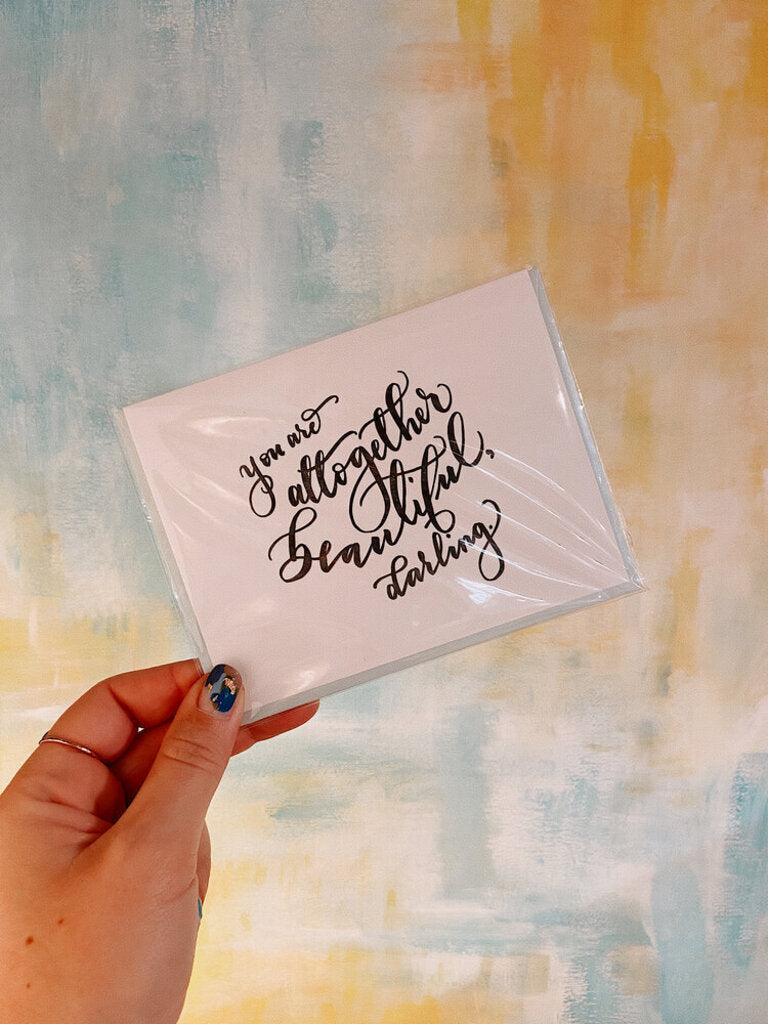 you are
altogether
beautiful,
darling.